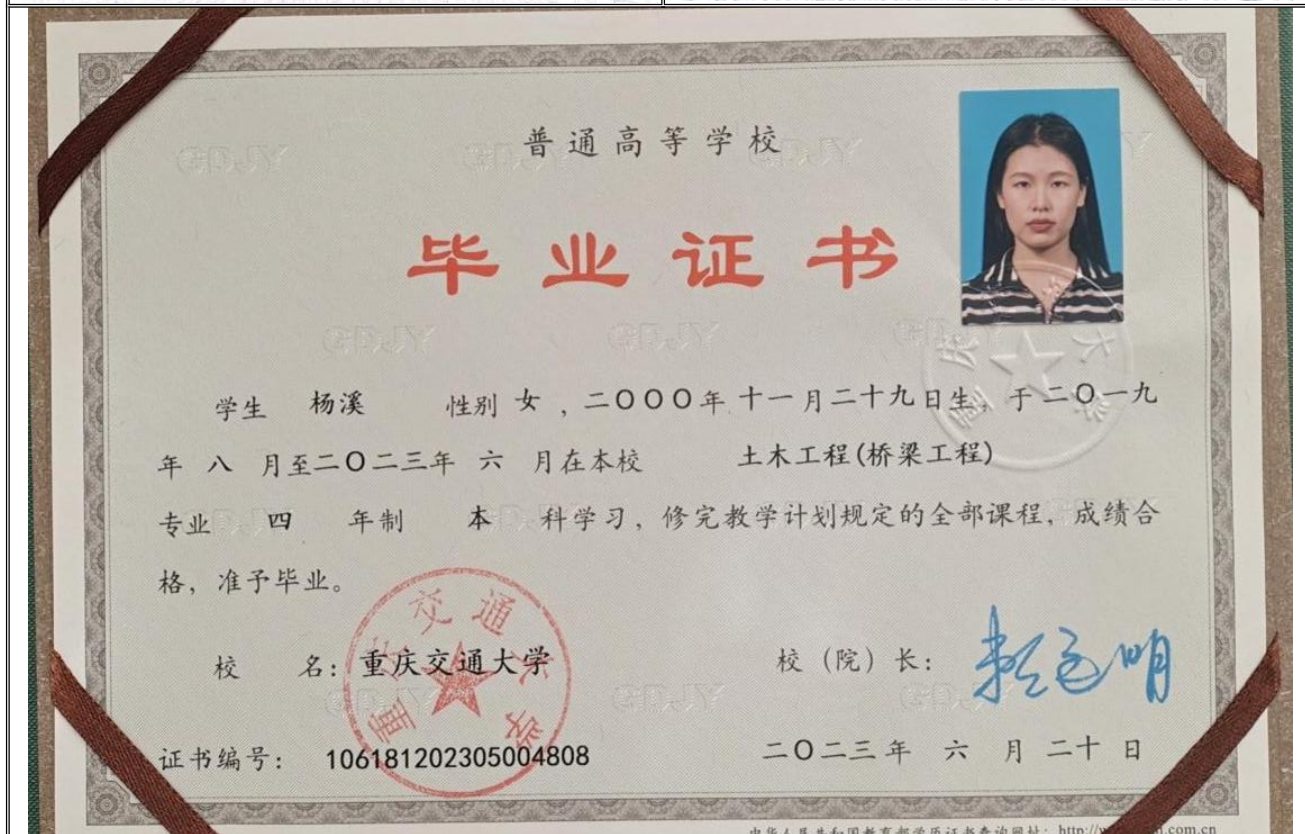 普通高等学校
毕业证书
学生 杨溪 性别 女 ,二〇〇〇年 十一月二十九日生, 于二〇一九
年 八 月至二〇二三年 六 月在本校 土木工程(桥梁工程)
专业 四 年制 本 科学习, 修完教学计划规定的全部课程, 成绩合
格, 准予毕业。
校 名: 重庆交通大学
校 (院) 长:
证书编号: 106181202305004808
二〇二三年 六 月 二十 日
中华人民共和国教育部学历证书查询网址: